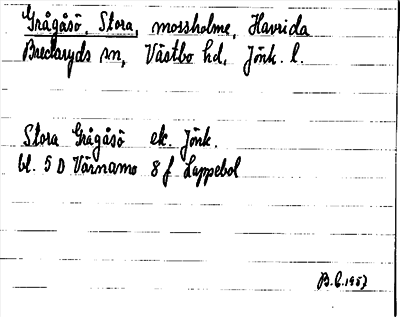 Grågåsö, Stora, mossholme, Havrida
Bredaryds sn, Västbo hd, Jönk. l.
Stora Grågåsö ek. Jönk.
bl. 5 D Värnamo 8 f Lappebol
B.C. 1957